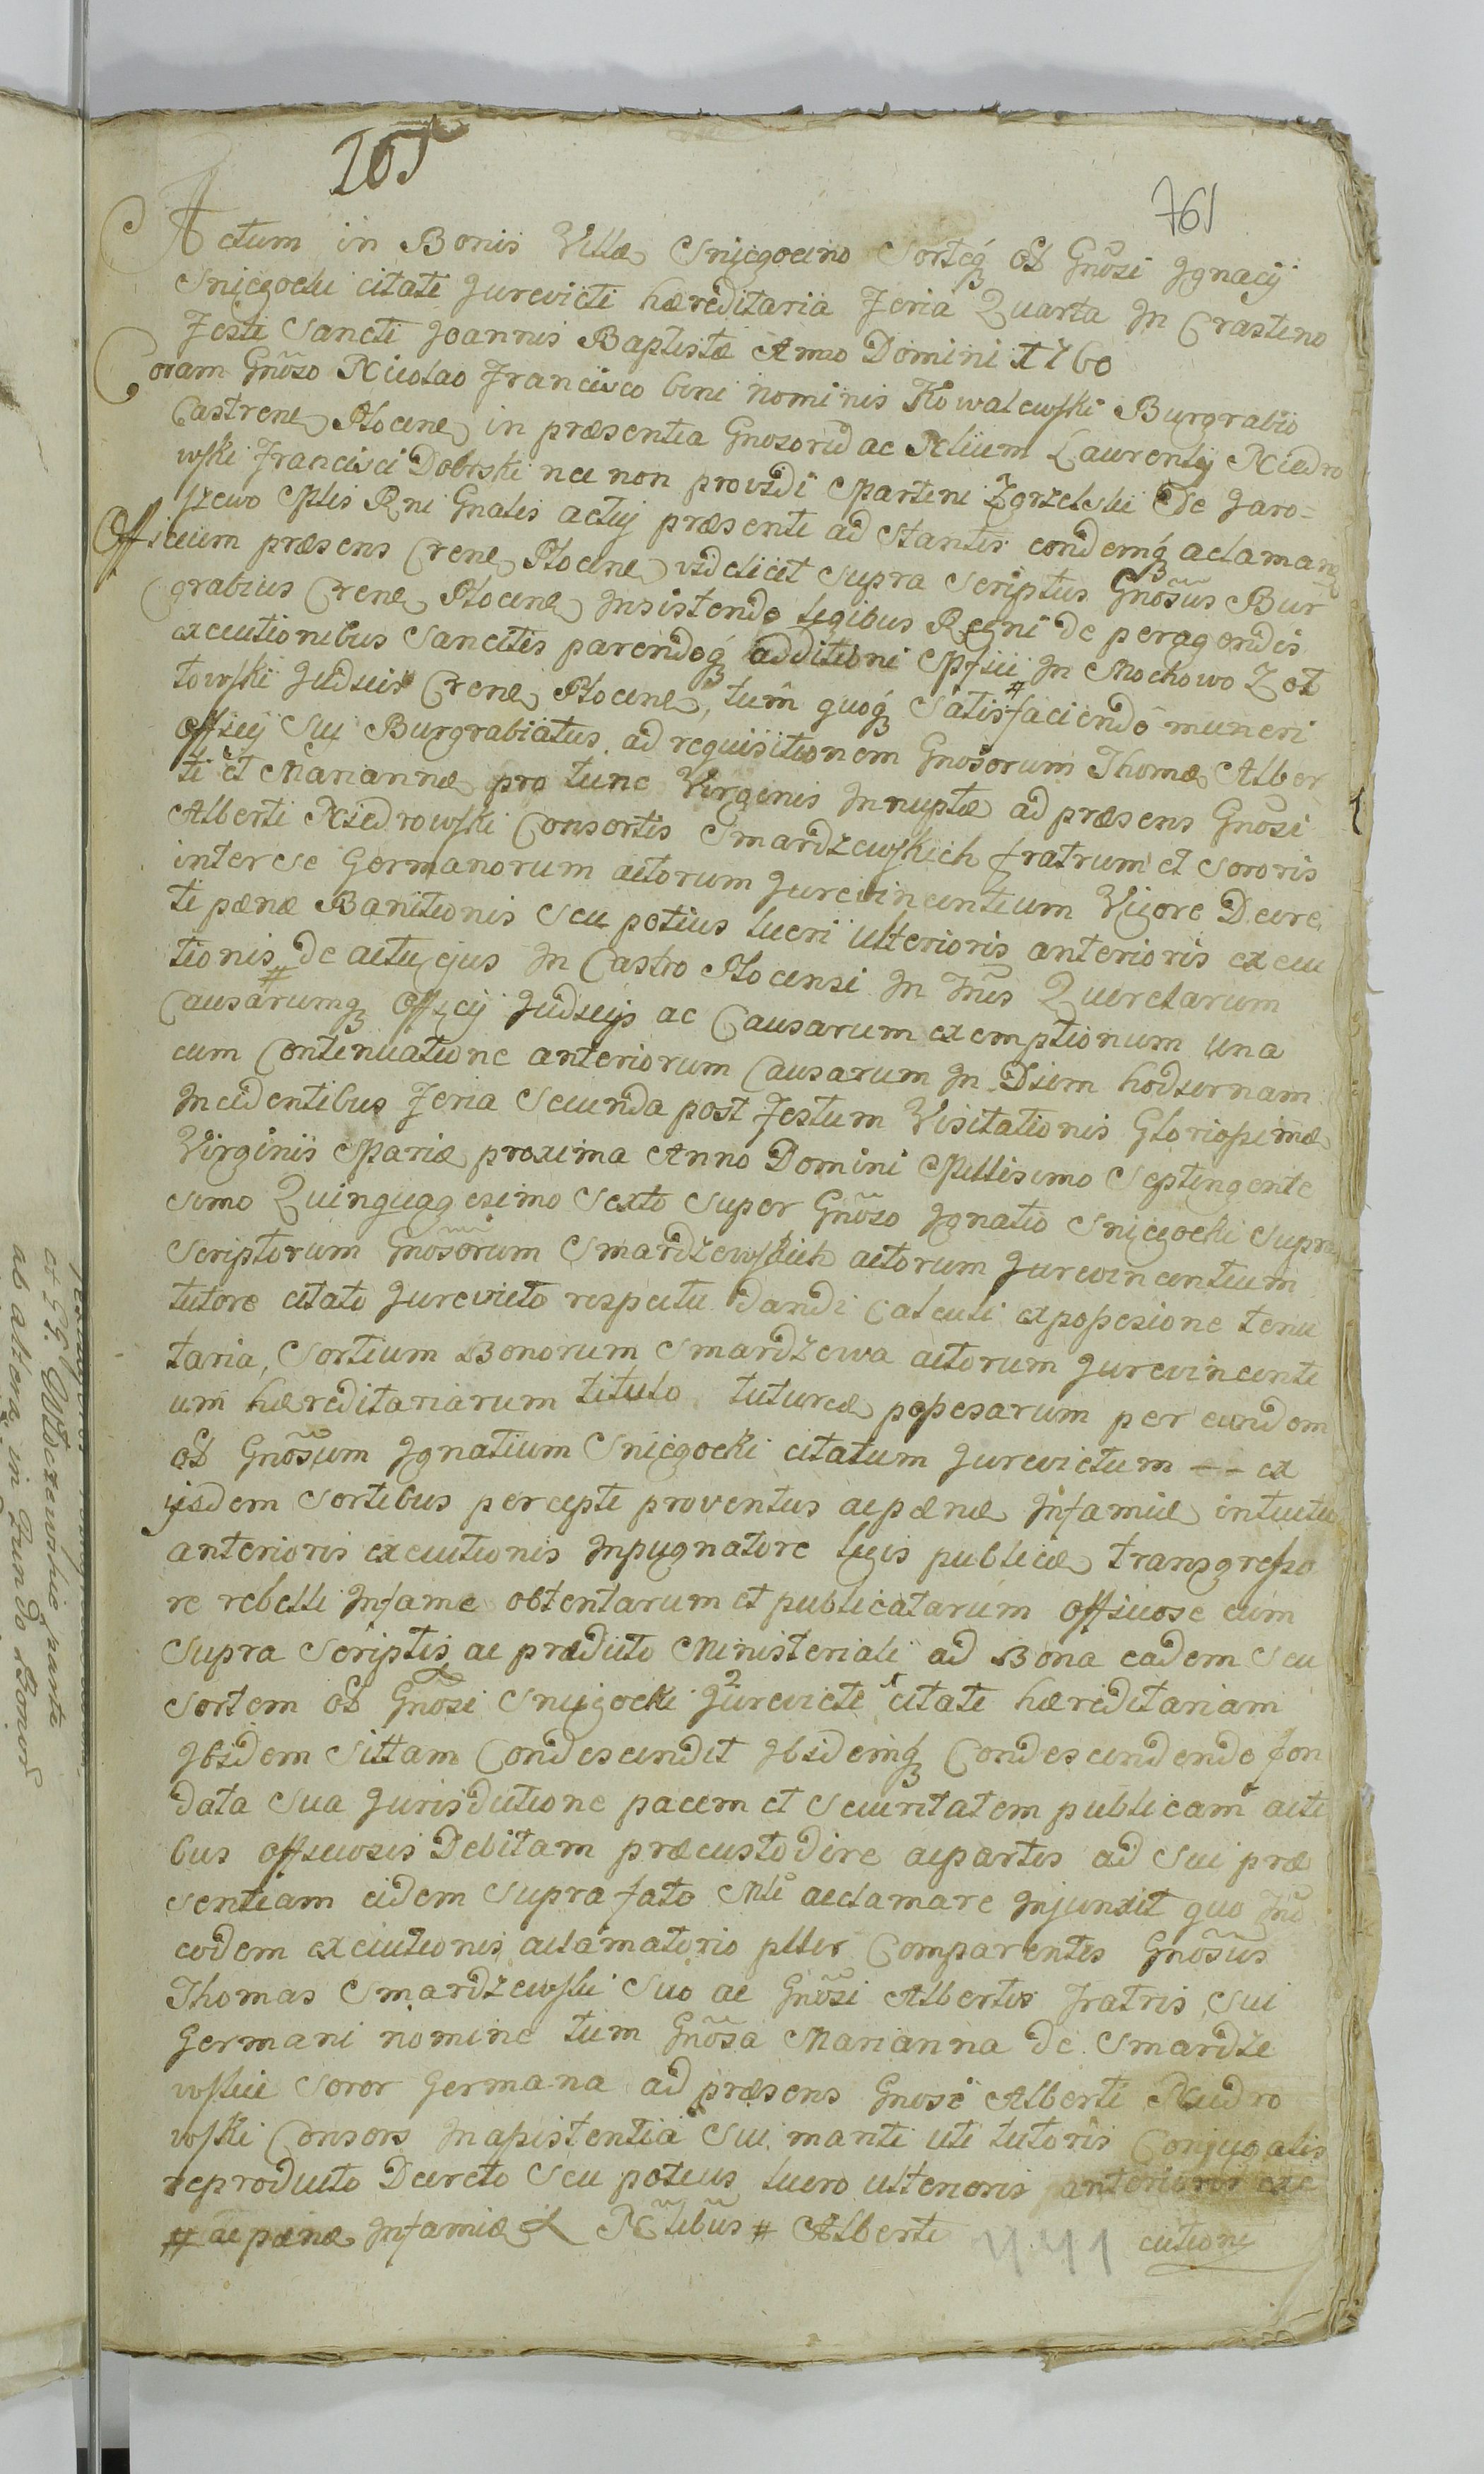 205
761
Actum in Bonis Villæ Sniegocino Sorteq́ȝ olĩ Gñosi Ignacij
Sniegocki citati Jurevicti hæreditaria Feria Quarta In Crastino
Festi Sancti Joannis Baptistæ Anno Domini 1760
Coram Gñoso Nicolao Francisco boni nominis Kowalewski Burgrabio
Castrenẽ Plocenẽ in præsentia Gnosorũ ac Nlium Laurentij Niedro
wski Francisci Dobrski nec non providi Martini Zgrzelski de Jaro=
szewo Mlis Rni Gnalis actuj præsenti ad stantis eondemq́ȝ aclaman̄
Officium præsens Crenẽ Plocenẽ videlicet supra Scriptus Gñosus Bur
grabius Crenẽ Plocenẽ Insistendo legibus Regni de peragendis
executionibus Sancitis parendoq́ȝ additioni Mfsii In Mochowo Zot
towski Judicis Crenẽ Plocenẽ, tum̃ quoq́ȝ Satis#faciendo muneri
officij Sui Burgrabiatus ad requisitionem Gnosorum Thomæ Alber
ti et Mariannæ pro tunc Virginis Innuptæ ad præsens Gñosi
Alberti Niedrowski Consortis Smardzewskich fratrum et Sororis
inter se Germanorum actorum Jurevincentium Vigore Decre
ti pænæ Banitionis seu potius lucri ulterioris anterioris execu
tionis # de actu ejus In Castro Plocensi In Tñis Querelarum
Causarumq́ȝ officij Judicijs ac Causarum exemptionum una
cum Continuatione anteriorum Causarum In Diem hodiernam
Incidentibus Feria Secunda post Festum Visitationis Gloriosimæ
Virginis Mariæ proxima Anno Domini Millisimo Septingente
simo Quinquagesimo Sexto Super Gñoso Ignatio Sniegocki Supra
Scriptorum Gnosorum Smardzewskich actorum Jurevincentium
tutore citato Jurevicto respectu dandi Calculi expossesione tenu
taria, Sortium Bonorum Smardzewa actorum Jurevincenti
um hæreditariarum titulo tutureæ possesarum per eundem
olĩ Gñosum Ignatium Sniegocki citatum Jurevictum -- ex
ijsdem Sortibus percepti proventus acpænæ Infamiæ intuitu
anterioris executionis Inpugnatore legis publicæ transgresso
re rebelli Infame obtentarum et publicatarum officiose cum
Supra Scriptis ac prædicto Ministeriali ad Bona eadem Seu
Sortem olĩ Gñosi Sniegocki Jurevicti citati hæreditariam
Ibidem Sittam Condescendit Ibidemq́ȝ Condescendendo fon
data Sua Jurisdictione pacem et Securitatem publicam acti
bus officiosis Debitam præcustodire acpartes ad Sui præ
sentiam eidem Supra fato Mlĩ acclamare Injunxit quo Tñõ
eodem executionis aclamatorio plter Comparentes Gñosus
Thomas Smardzewski Suo ac Gñosi Albertis Fratris Sui
Germani nomine tum Gñosa Marianna de Smardze
wskie Soror Germana ad præsens Gnosi Alberti Niedro
wski Consors In assistentia Sui mariti uti tutoris Conjugalis
reproducto Decreto Seu potius lucro ulterioris anterioris exe
# ac pænæ Infamiæ & Nĩtibus # Alberti
cutione
et GG. parte
ab altera in Fundo Bonor̃